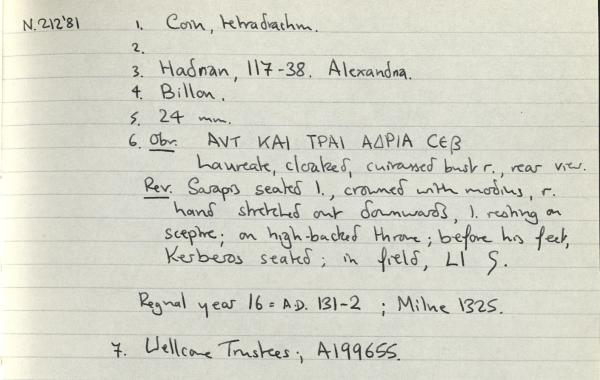 N.212'81 1. Coin, tetradrachm.
2.
3. Hadrian, 117-38. Alexandria.
4. Billon.
5. 24 mm.
6. Obv. ΑVΤ ΚΑΙ ΤΡΑΙ ΑΔΡΙΑ CЄβ
Laureate, cloaked, cuirassed bust r., rear view.
Rev. Sarapis seated l., crowned with modius, r.
hand stretched out downwards, l. resting on
sceptre; on high-backed throne; before his feet,
Kerberos seated; in field, LI Ϛ.
Regnal year 16 = A.D. 131-2 ; Milne 1325.
7. Wellcome Trustees; A199655.